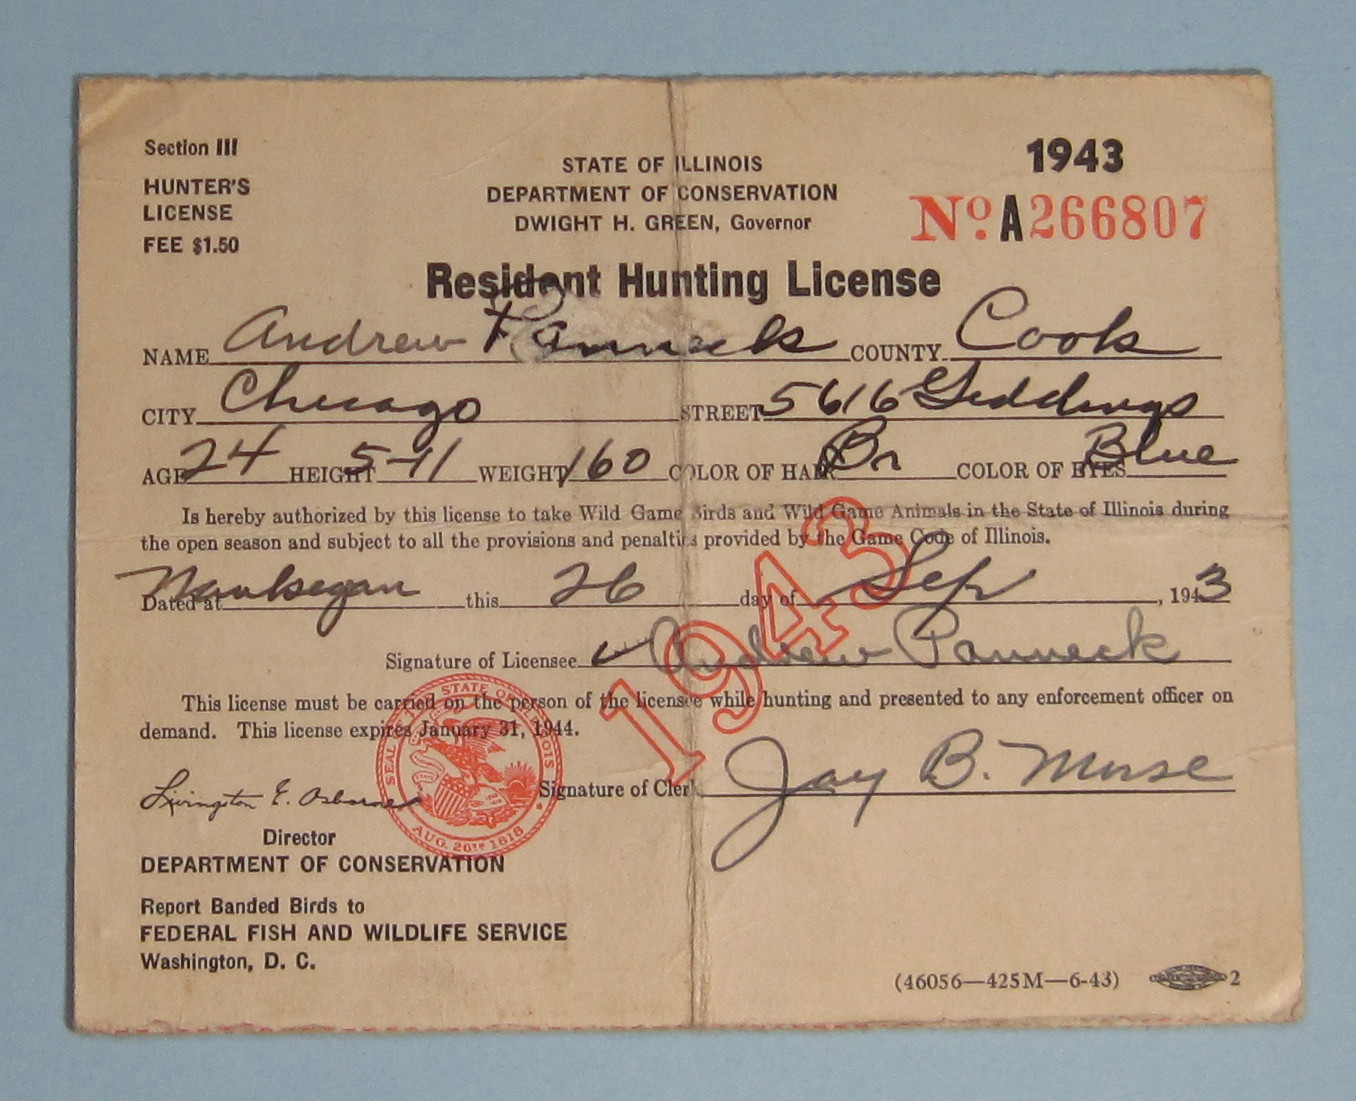 Section III
HUNTER'S
LICENSE
FEE $1.50
STATE OF ILLINOIS
DEPARTMENT OF CONSERVATION
DWIGHT H. GREEN, Governor
1943
No. A266807
Resident Hunting License
NAME Andrew Panneck COUNTY Cook
CITY Chicago STREET 5616 Giddings
AGE 24 HEIGHT 5-11 WEIGHT 160 COLOR OF HAIR Br COLOR OF EYES Blue
Is hereby authorized by this license to take Wild Game Birds and Wild Game Animals in the State of Illinois during
the open season and subject to all the provisions and penalties provided by the Game Code of Illinois.
Dated at Waukegan this 26 day of Sep, 1943
1943
Signature of Licensee Andrew Panneck
This license must be carried on the person of the licensee while hunting and presented to any enforcement officer on
demand. This license expires January 31, 1944.
SEAL OF THE STATE OF ILLINOIS
AUG. 26TH 1818
Signature of Clerk Jay B. Morse
Livingston E. Osborne
Director
DEPARTMENT OF CONSERVATION
Report Banded Birds to
FEDERAL FISH AND WILDLIFE SERVICE
Washington, D. C.
(46056—425M—6-43) 2